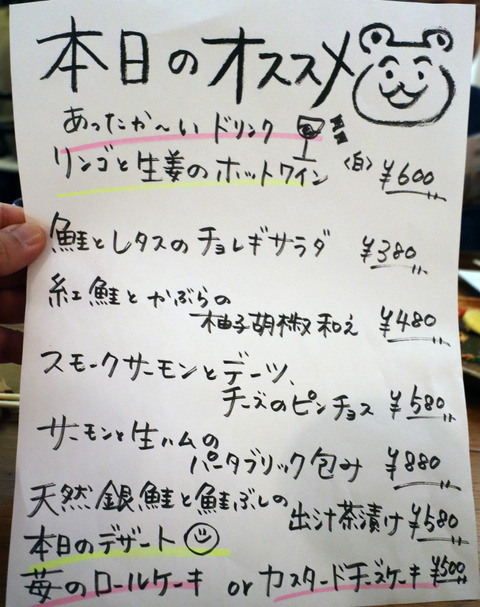 本日のオススメ
あったか〜いドリンク
リンゴと生姜のホットワイン 〈白〉 ¥600
鮭とレタスのチョレギサラダ ¥380
紅鮭とかぶらの
柚子胡椒和え ¥480
スモークサーモンとデーツ、
チーズのピンチョス ¥580
サーモンと生ハムの
パータブリック包み ¥880
天然銀鮭と鮭ぶしの
出汁茶漬け ¥580
本日のデザート
苺のロールケーキ or カスタードチーズケーキ ¥500